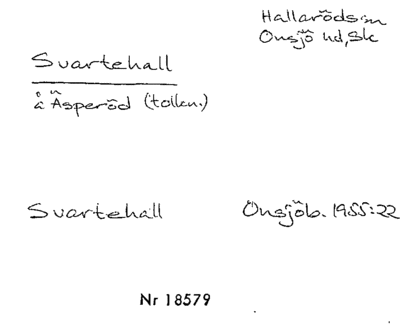 Hallaröds sn
Onsjö hd, Sk
Svartehall
å Äsperöd (tolkn.)
Svartehall Onsjöb. 1955:22
Nr 18579